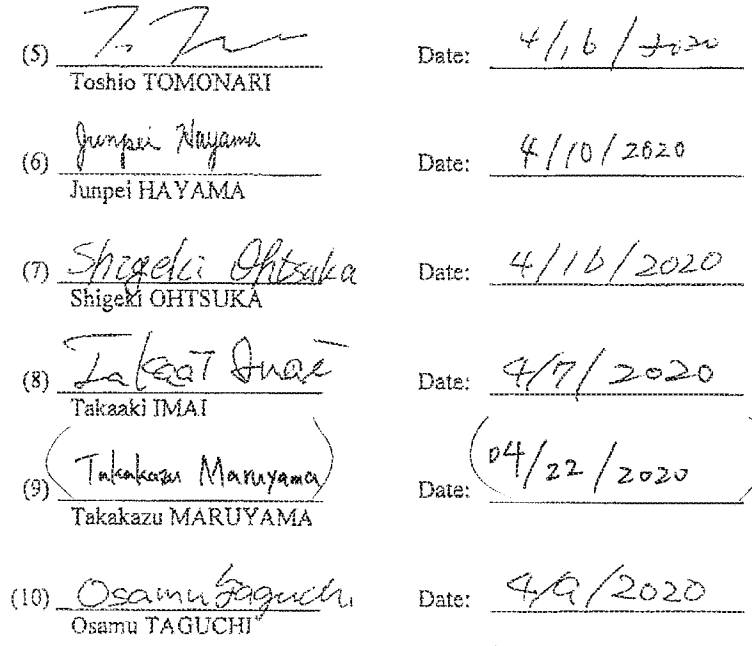 (5) Date: 4/16/2020
Toshio TOMONARI
(6) Junpei Hayama Date: 4/10/2020
Junpei HAYAMA
(7) Shigeki Ohtsuka Date: 4/16/2020
Shigeki OHTSUKA
(8) Date: 4/7/2020
Takaaki IMAI
(9) Takakazu Maruyama Date: 04/22/2020
Takakazu MARUYAMA
(10) Osamu Taguchi Date: 4/9/2020
Osamu TAGUCHI